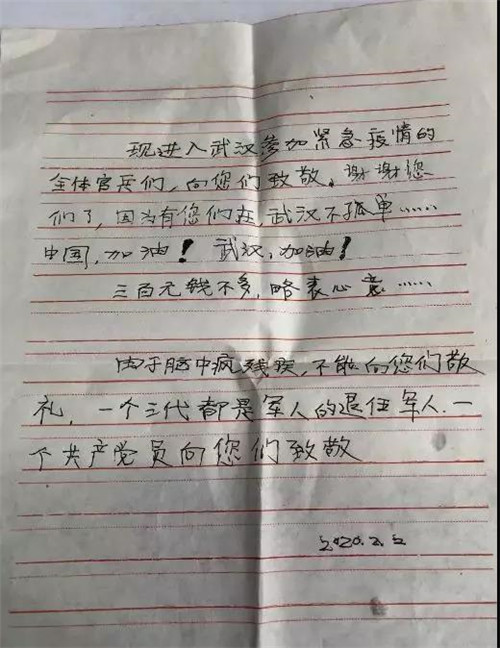 现进入武汉参加紧急疫情的
全体官兵们，向您们致敬。谢谢您
们了，因为有您们在，武汉不孤单……
中国，加油！ 武汉，加油！
三百元钱不多，略表心意……
由于脑中疯残疾，不能向您们敬
礼，一个三代都是军人的退伍军人.一
个共产党员向您们致敬
2020.2.2